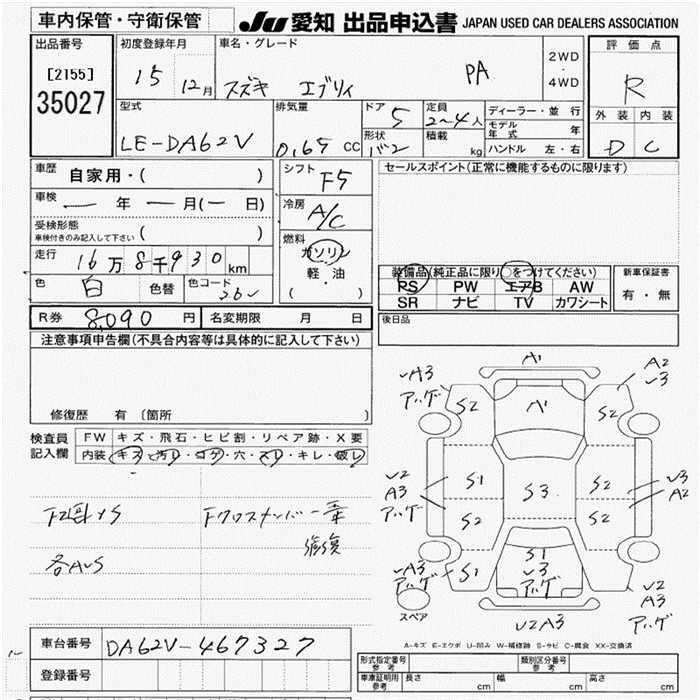 車内保管・守衛保管
JU 愛知 出品申込書 JAPAN USED CAR DEALERS ASSOCIATION
出品番号
[2155]
35027
初度登録年月
15 12月
車名・グレード
スズキ エブリィ PA
2WD
・
4WD
評価点
R
外装 内装
D C
型式
LE-DA62V
排気量
0.65 cc
ドア 5
形状 バン
定員
2~4人
積載 kg
ディーラー・並行
モデル年式 年
ハンドル 左・右
車歴 自家用・( )
車検 — 年 — 月(— 日)
受検形態
車検付きのみ記入して下さい ( )
走行 16万8千930km
色 白 色替 色コード 26U
シフト F5
冷房 A/C
燃料
ガソリン
軽・油
( )
セールスポイント(正常に機能するものに限ります)
装備品(純正品に限り○をつけてください)
PS PW エアB AW
SR ナビ TV カワシート
新車保証書
有・無
R券 8,090円 名変期限 月 日
後日品
注意事項申告欄(不具合内容等は具体的に記入して下さい)
修復歴 有〔箇所 〕
検査員記入欄
FW キズ・飛石・ヒビ割・リペア跡・X要
内装 キズ・汚レ・コゲ・穴・スレ・キレ・破レ
Fクロスメンバー一部
各AUS
A1
UA3
アハゲ
A2
U3
S2
A1
S2
U2
A3
アハゲ
S1
S3
S2
U3
A2
S2
S2
UA3
アハゲ
S1
S1
U3
アハゲ
U2
A3
アハゲ
スペア
U2A3
A-キズ E-エクボ U-凹み W-補修跡 S-サビ C-腐食 XX-交換済
車台番号 DA62V-467327
登録番号
形式指定番号 参考
類別区分番号 参考
車庫証明用 参考 長さ cm 幅 cm 高さ cm